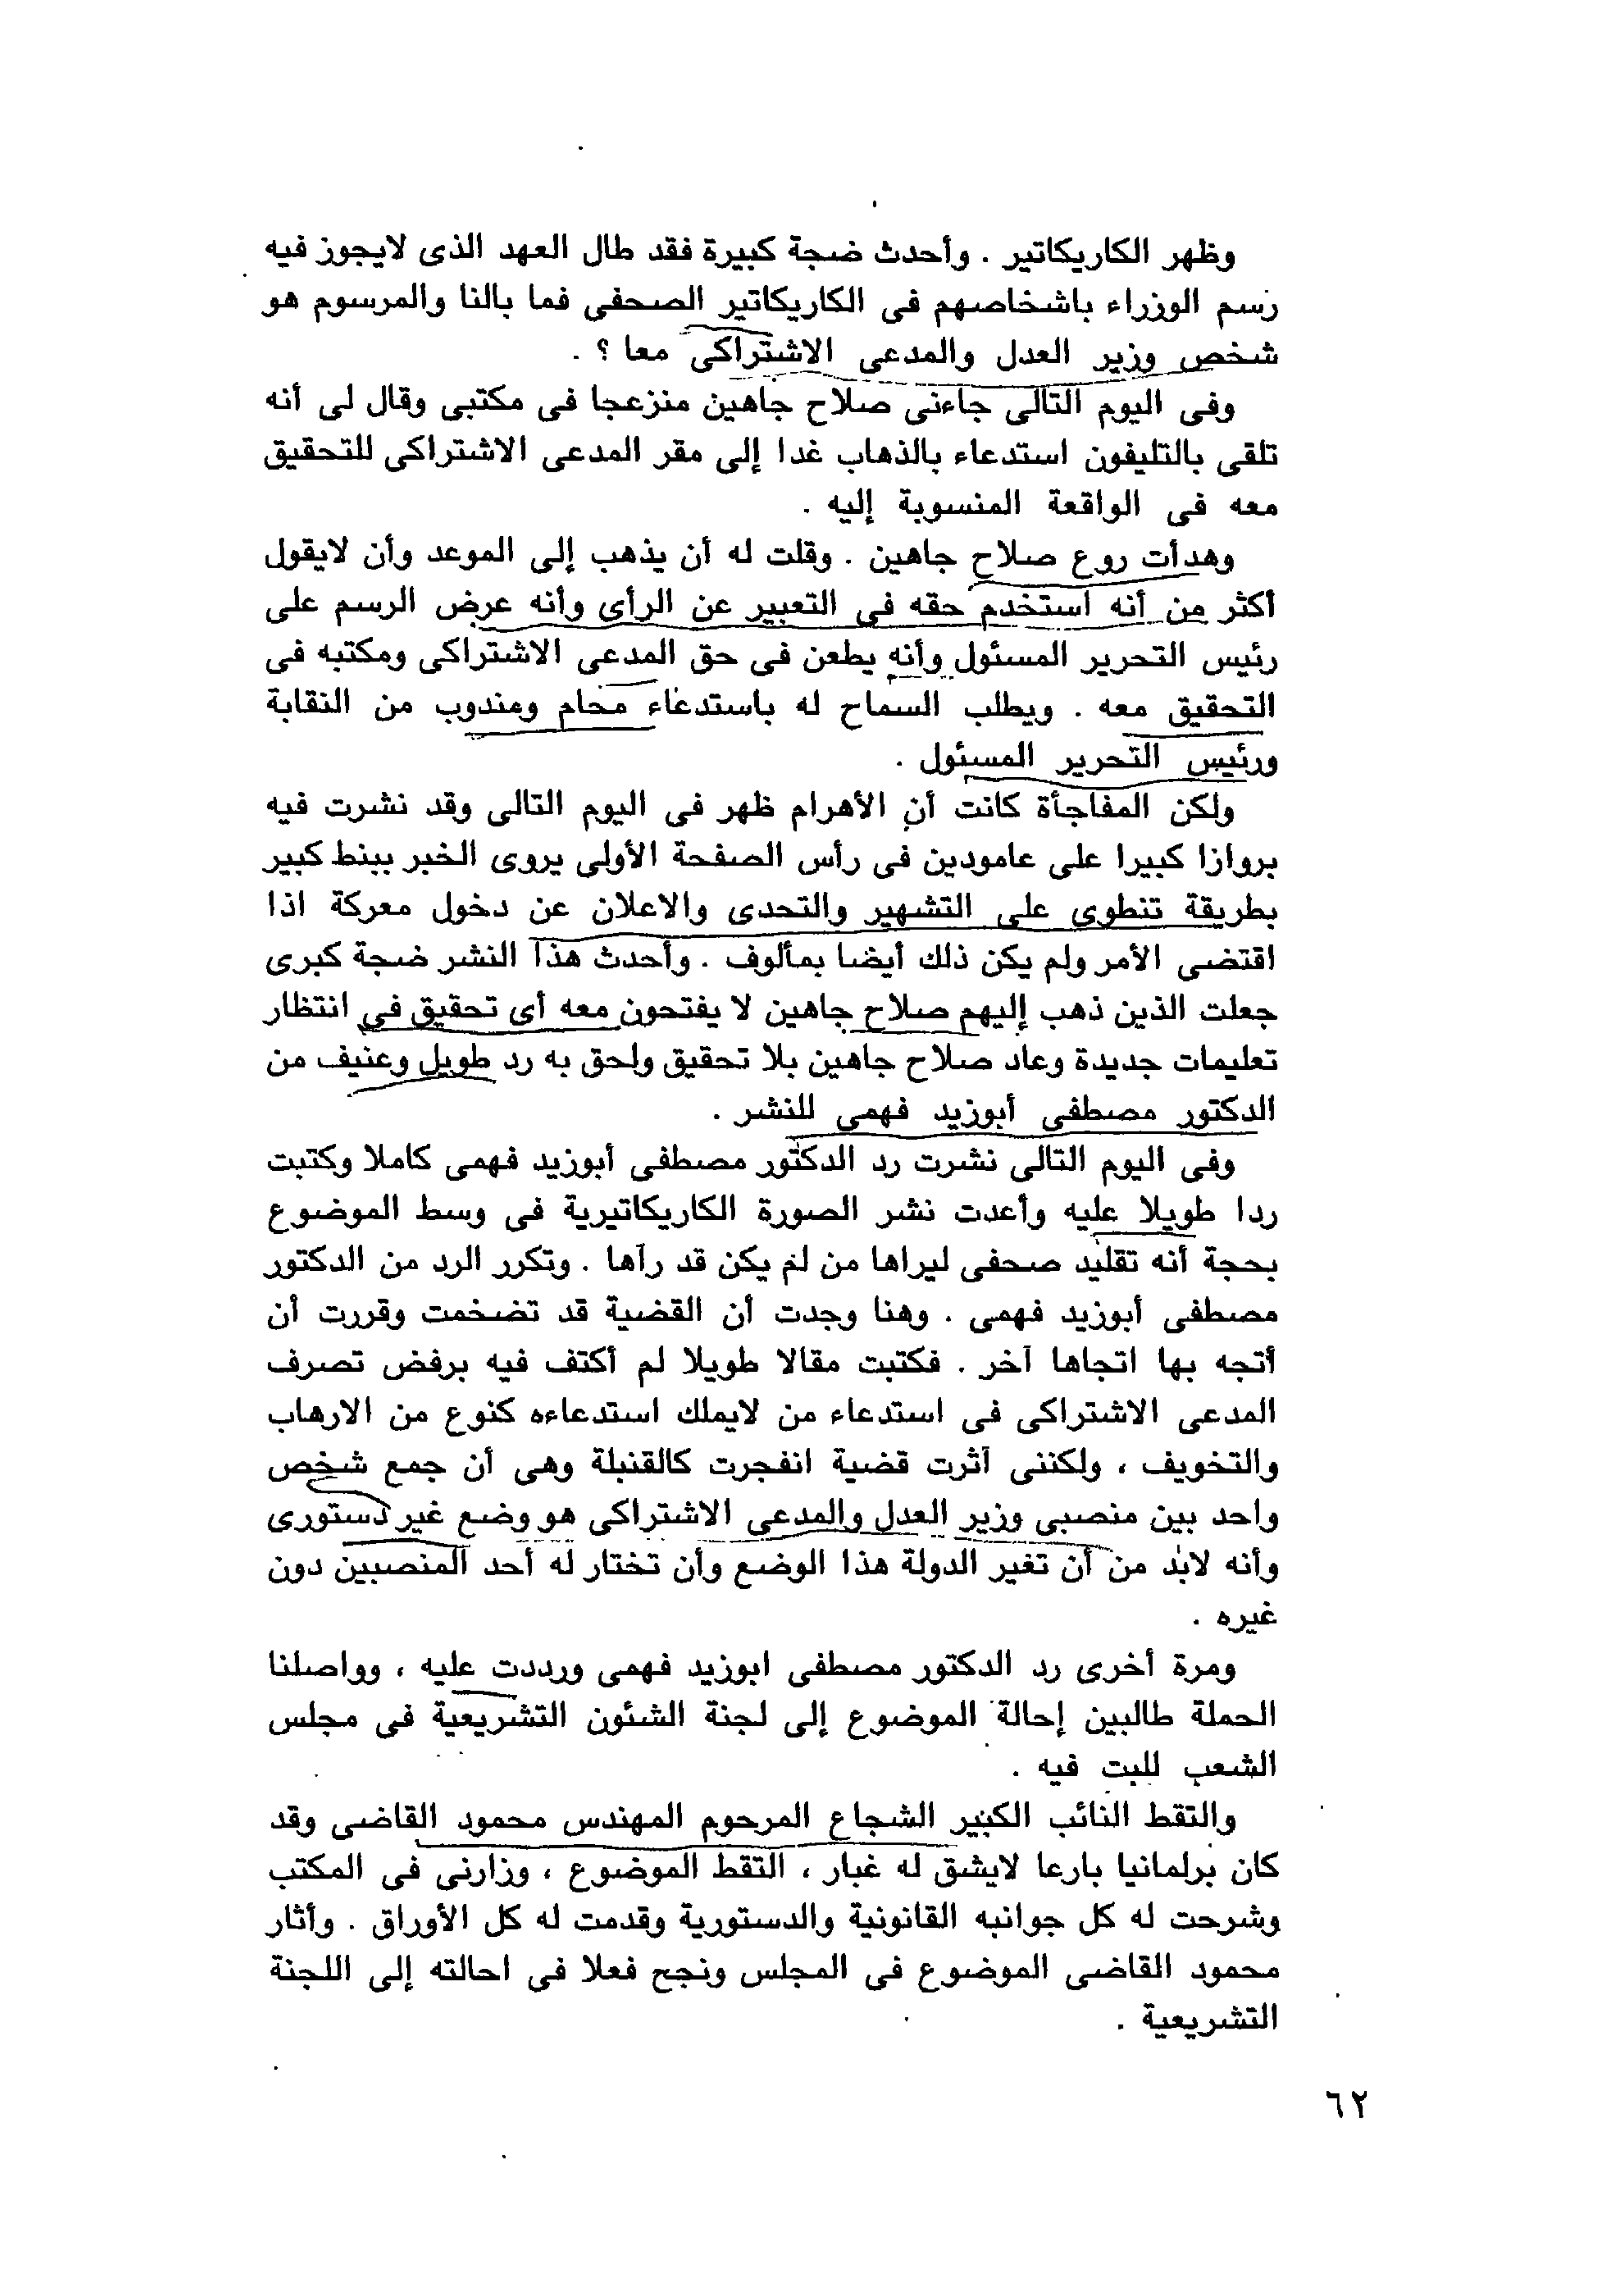 وظهر الكاريكاتير . وأحدث ضجة كبيرة فقد طال العهد الذى لايجوز فيه
رسم الوزراء باشخاصهم فى الكاريكاتير الصحفى فما بالنا والمرسوم هو
شخص وزير العدل والمدعى الاشتراكى معا ؟ .
وفى اليوم التالى جاءنى صلاح جاهين منزعجا فى مكتبى وقال لى أنه
تلقى بالتليفون استدعاء بالذهاب غدا إلى مقر المدعى الاشتراكى للتحقيق
معه فى الواقعة المنسوبة إليه .
وهدأت روع صلاح جاهين . وقلت له أن يذهب إلى الموعد وأن لايقول
أكثر من أنه استخدم حقه فى التعبير عن الرأى وأنه عرض الرسم على
رئيس التحرير المسئول وأنه يطعن فى حق المدعى الاشتراكى ومكتبه فى
التحقيق معه . ويطلب السماح له باستدعاء محام ومندوب من النقابة
ورئيس التحرير المسئول .
ولكن المفاجأة كانت أن الأهرام ظهر فى اليوم التالى وقد نشرت فيه
بروازا كبيرا على عامودين فى رأس الصفحة الأولى يروى الخبر ببنط كبير
بطريقة تنطوى على التشهير والتحدى والاعلان عن دخول معركة اذا
اقتضى الأمر ولم يكن ذلك أيضا بمألوف . وأحدث هذا النشر ضجة كبرى
جعلت الذين ذهب إليهم صلاح جاهين لا يفتحون معه أى تحقيق فى انتظار
تعليمات جديدة وعاد صلاح جاهين بلا تحقيق ولحق به رد طويل وعنيف من
الدكتور مصطفى أبوزيد فهمى للنشر .
وفى اليوم التالى نشرت رد الدكتور مصطفى أبوزيد فهمى كاملا وكتبت
ردا طويلا عليه وأعدت نشر الصورة الكاريكاتيرية فى وسط الموضوع
بحجة أنه تقليد صحفى ليراها من لم يكن قد رآها . وتكرر الرد من الدكتور
مصطفى أبوزيد فهمى . وهنا وجدت أن القضية قد تضخمت وقررت أن
أتجه بها اتجاها آخر . فكتبت مقالا طويلا لم أكتف فيه برفض تصرف
المدعى الاشتراكى فى استدعاء من لايملك استدعاءه كنوع من الارهاب
والتخويف ، ولكننى آثرت قضية انفجرت كالقنبلة وهى أن جمع شخص
واحد بين منصبى وزير العدل والمدعى الاشتراكى هو وضع غير دستورى
وأنه لابد من أن تغير الدولة هذا الوضع وأن تختار له أحد المنصبين دون
غيره .
ومرة أخرى رد الدكتور مصطفى ابوزيد فهمى ورددت عليه ، وواصلنا
الحملة طالبين إحالة الموضوع إلى لجنة الشئون التشريعية فى مجلس
الشعب للبت فيه .
والتقط النائب الكبير الشجاع المرحوم المهندس محمود القاضى وقد
كان برلمانيا بارعا لايشق له غبار ، التقط الموضوع ، وزارنى فى المكتب
وشرحت له كل جوانبه القانونية والدستورية وقدمت له كل الأوراق . وأثار
محمود القاضى الموضوع فى المجلس ونجح فعلا فى احالته إلى اللجنة
التشريعية .
٦٢